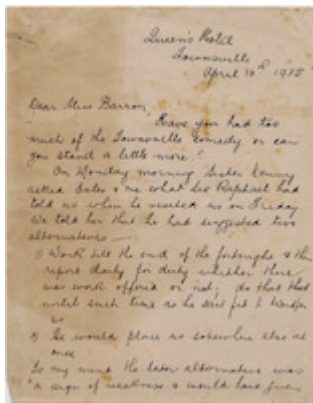 Queen's Hotel
Townsville
April 10th 1935
Dear Miss Barron,
Have you had too
much of the Townsville comedy or can
you stand a little more?
On Monday morning Sister Kenny
asked Bates & me what Sir Raphael had
told us when he visited us on Friday
We told her that he had suggested two
alternatives —
1) Work till the end of the fortnight & then
report daily for duty whether there
was work offered or not; do that
until such time as he
us
2) He would place us somewhere else at
once
To my mind the later alternative was
a sign of weakness & would have given